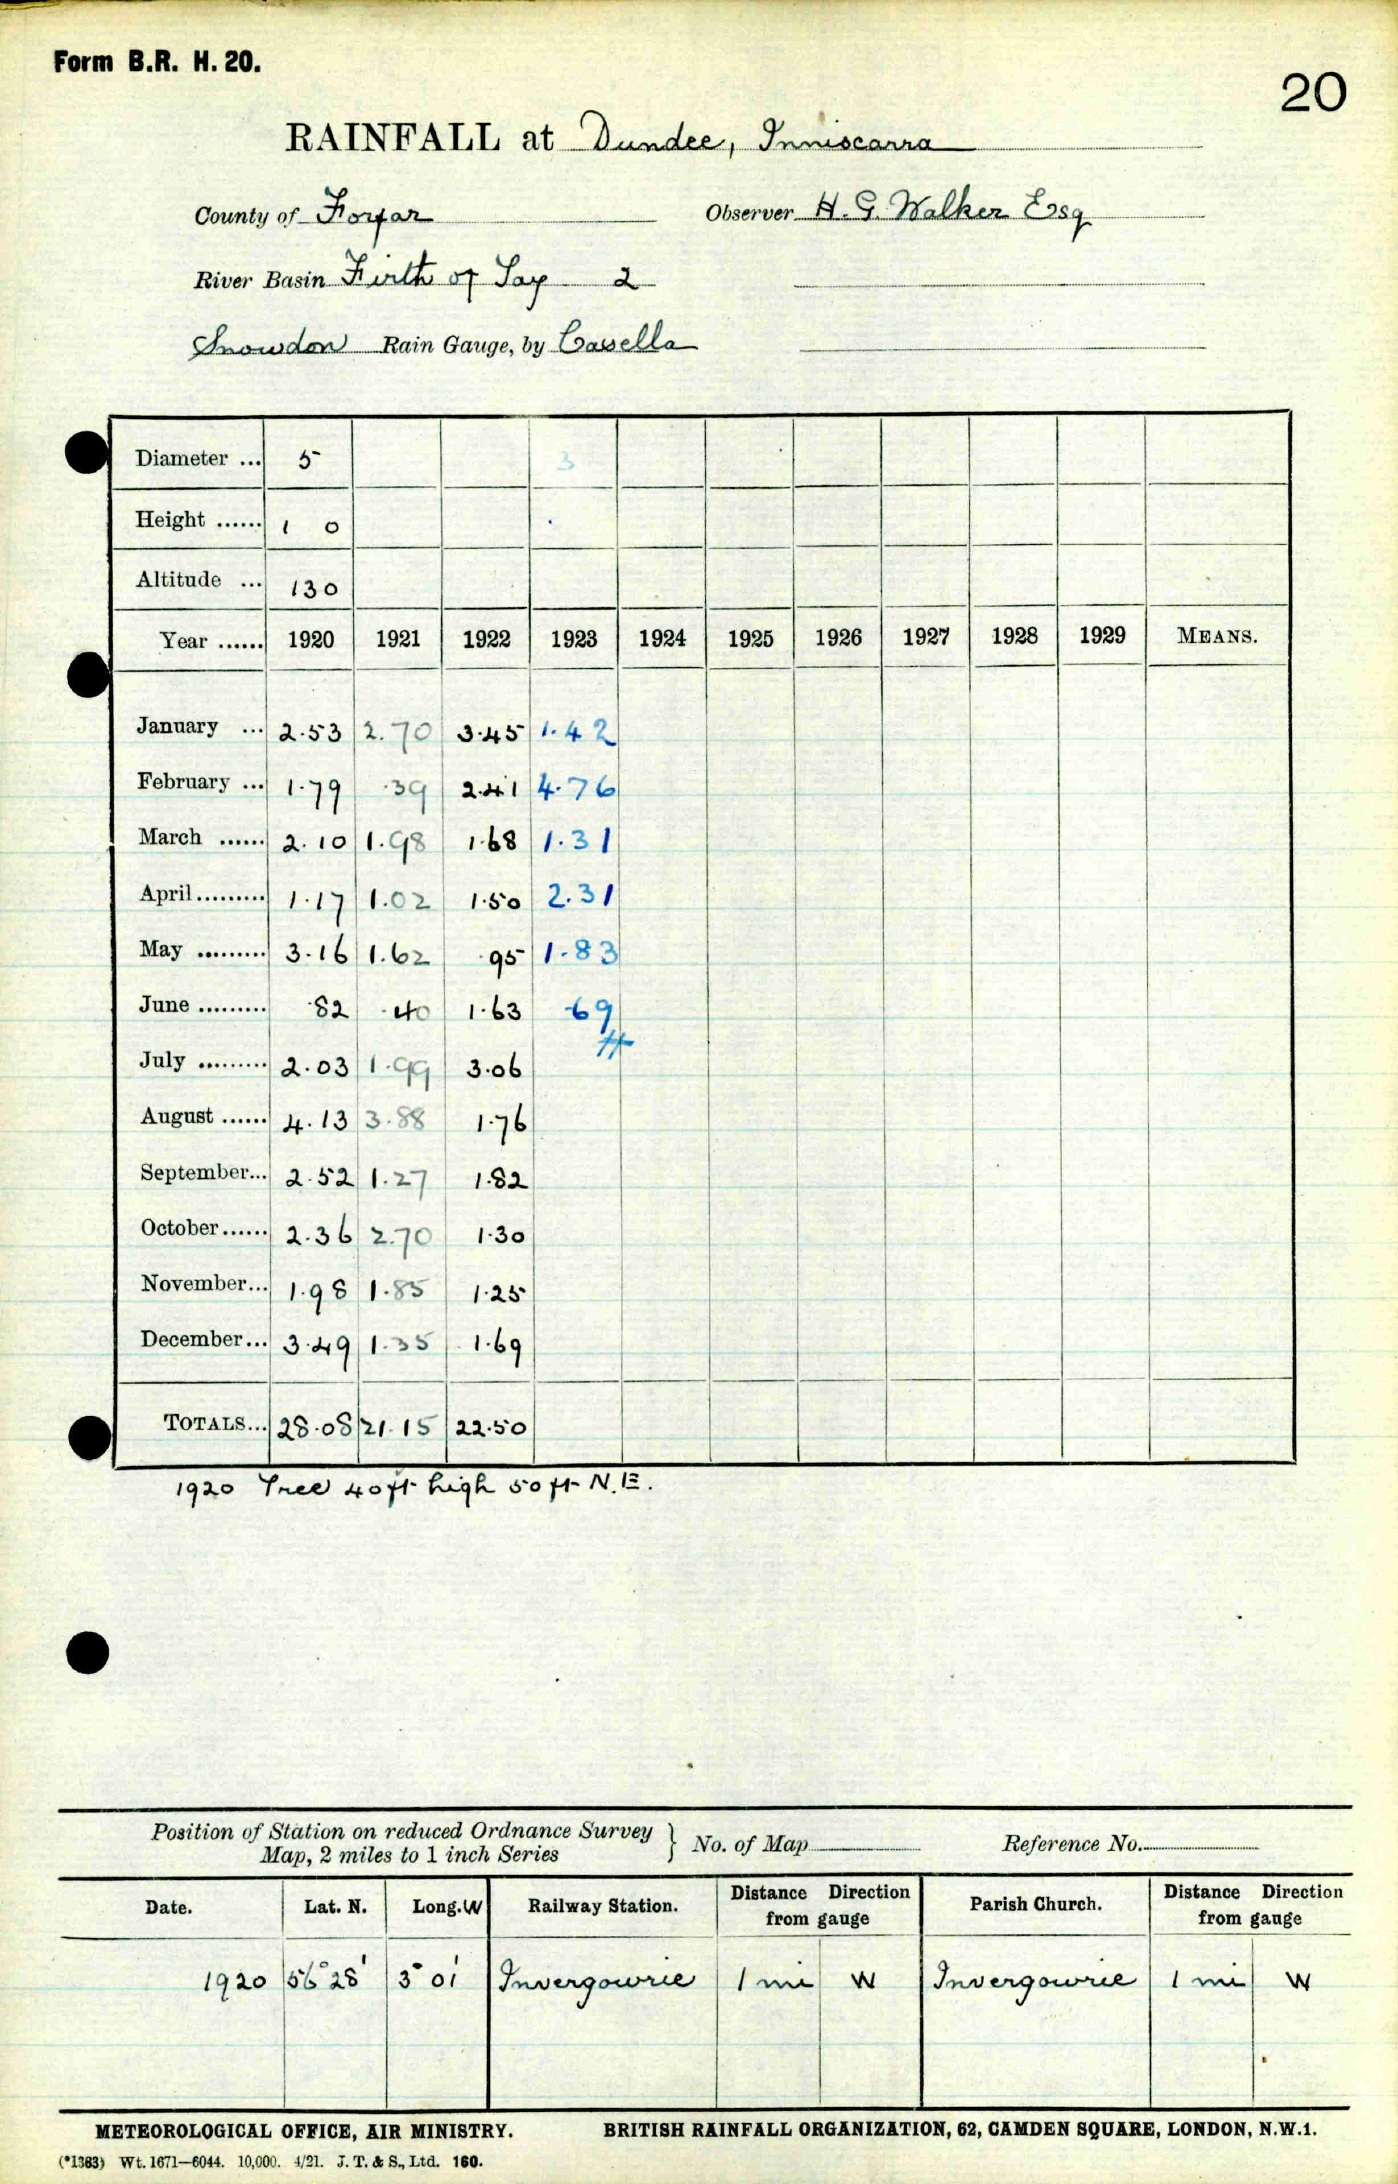 Form B.R. H. 20.
20
RAINFALL at Dundee, Inniscarra
County of Forfar Observer H. G. Walker Esq
River Basin Firth of Tay 2
Snowdon Rain Gauge, by Casella
Diameter ... 5 3
Height ...... 1 0
Altitude ... 130
Year ...... 1920 1921 1922 1923 1924 1925 1926 1927 1928 1929 MEANS.
January ... 2.53 2.70 3.45 1.42
February ... 1.79 .39 2.41 4.76
March ...... 2.10 1.98 1.68 1.31
April ......... 1.17 1.02 1.50 2.31
May ......... 3.16 1.62 .95 1.83
June ......... .82 .40 1.63 .69
July ......... 2.03 1.99 3.06
August ...... 4.13 3.88 1.76
September... 2.52 1.27 1.82
October ...... 2.36 2.70 1.30
November... 1.98 1.85 1.25
December... 3.49 1.35 1.69
TOTALS... 28.08 21.15 22.50
1920 Tree 40 ft high 50 ft N.E.
Position of Station on reduced Ordnance Survey
Map, 2 miles to 1 inch Series } No. of Map Reference No.
Date. Lat. N. Long. W Railway Station. Distance Direction from gauge Parish Church. Distance Direction from gauge
1920 56° 28' 3° 01' Invergowrie 1 mi W Invergowrie 1 mi W
METEOROLOGICAL OFFICE, AIR MINISTRY. BRITISH RAINFALL ORGANIZATION, 62, CAMDEN SQUARE, LONDON, N.W.1.
(*1383) Wt. 1671—6044. 10,000. 4/21. J. T. & S., Ltd. 160.